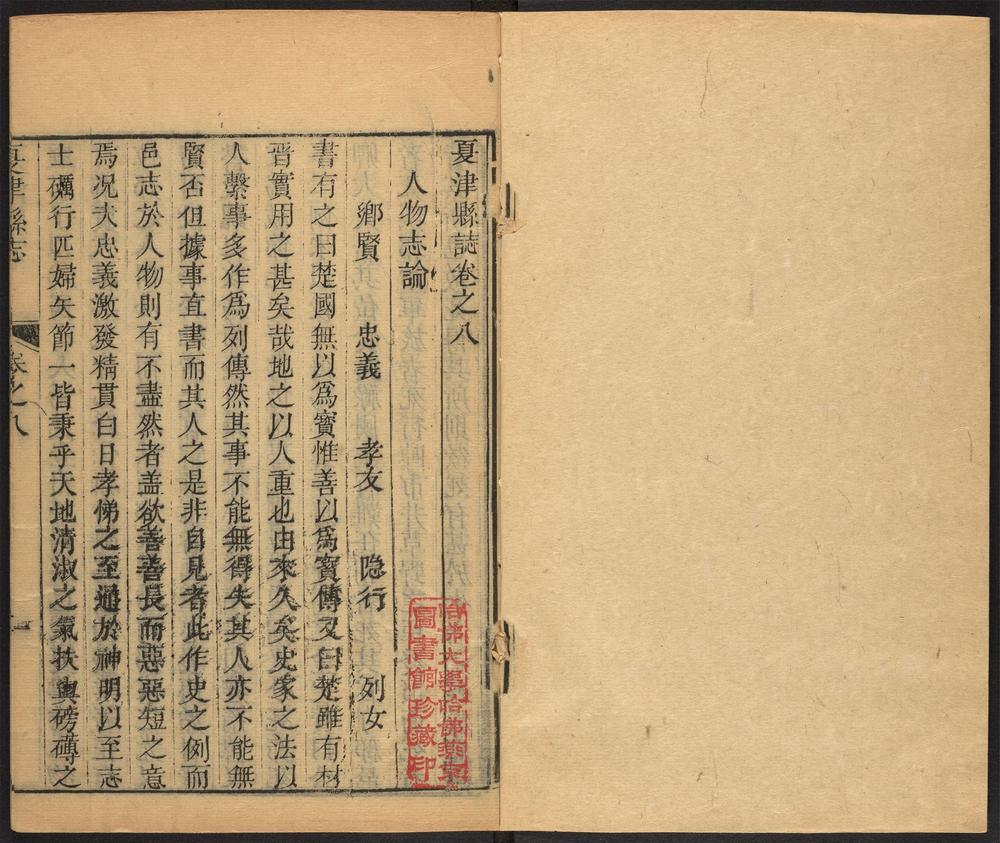 夏津縣誌卷之八
人物志論
鄉賢 忠義 孝友 隐行 列女
書有之曰楚國無以爲寳惟善以爲寳傳又曰楚雖有材
晋實用之甚矣哉地之以人重也由來久矣史家之法以
人繫事多作爲列傳然其事不能無得失其人亦不能無
賢否但據事直書而其人之是非自見者此作史之例而
邑志於人物則有不盡然者盖欲善善長而惡惡短之意
焉况夫忠義激發精貫白日孝悌之至通於神明以至志
士礪行匹婦矢節一皆秉乎天地清淑之氣扶輿磅礴之
夏津縣志 卷之八 一
哈佛大學哈佛燕京
圖書館珍藏印